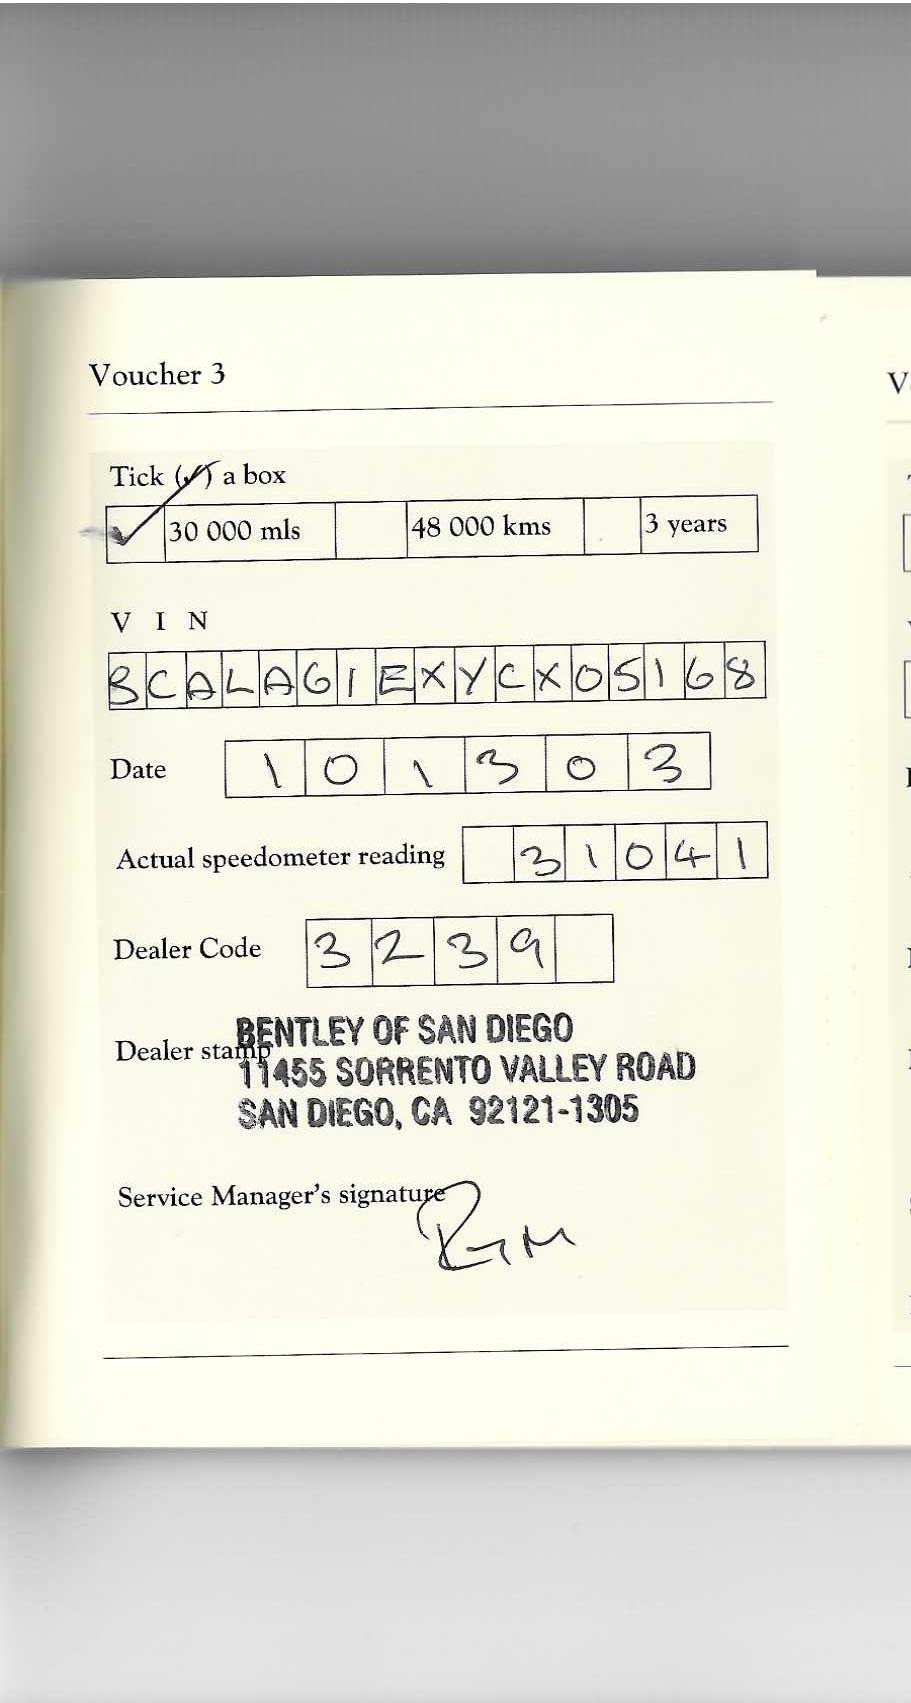 Voucher 3
Tick (✓) a box
✓ 30 000 mls 48 000 kms 3 years
V I N
SCALAG1EXYCX05168
Date 101303
Actual speedometer reading 31041
Dealer Code 3239
Dealer stamp
BENTLEY OF SAN DIEGO
11455 SORRENTO VALLEY ROAD
SAN DIEGO, CA 92121-1305
Service Manager's signature